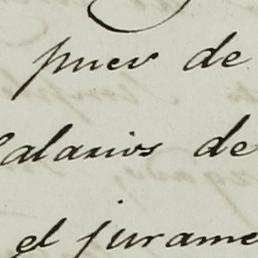 pues de
Salarios de
el jurame